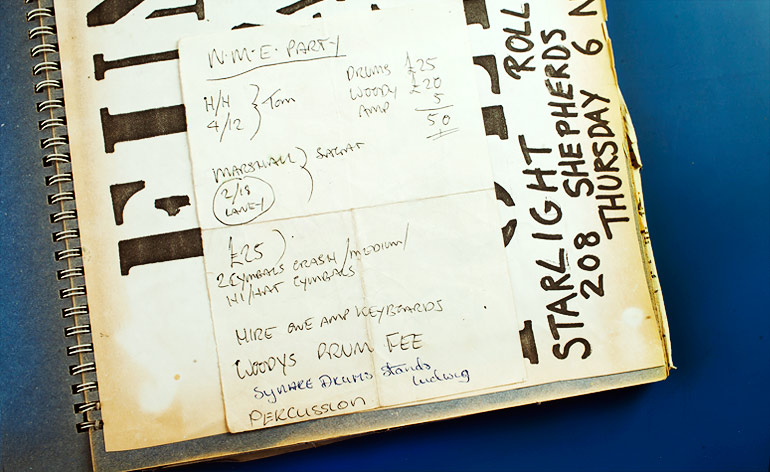 N.M.E. PARTY
DRUMS £25
WOODY £20
AMP 5
50
H/H
4/12
Tom
MARSHALL
SAGAT
2/18
LANEY
£25
2 CYMBALS CRASH/MEDIUM/
HI/HAT CYMBALS
HIRE ONE AMP KEYBOARDS
WOODYS DRUM FEE
SYNARE DRUMS Stands
Ludwig
PERCUSSION
ROLL
STARLIGHT
208 SHEPHERDS
THURSDAY 6 N